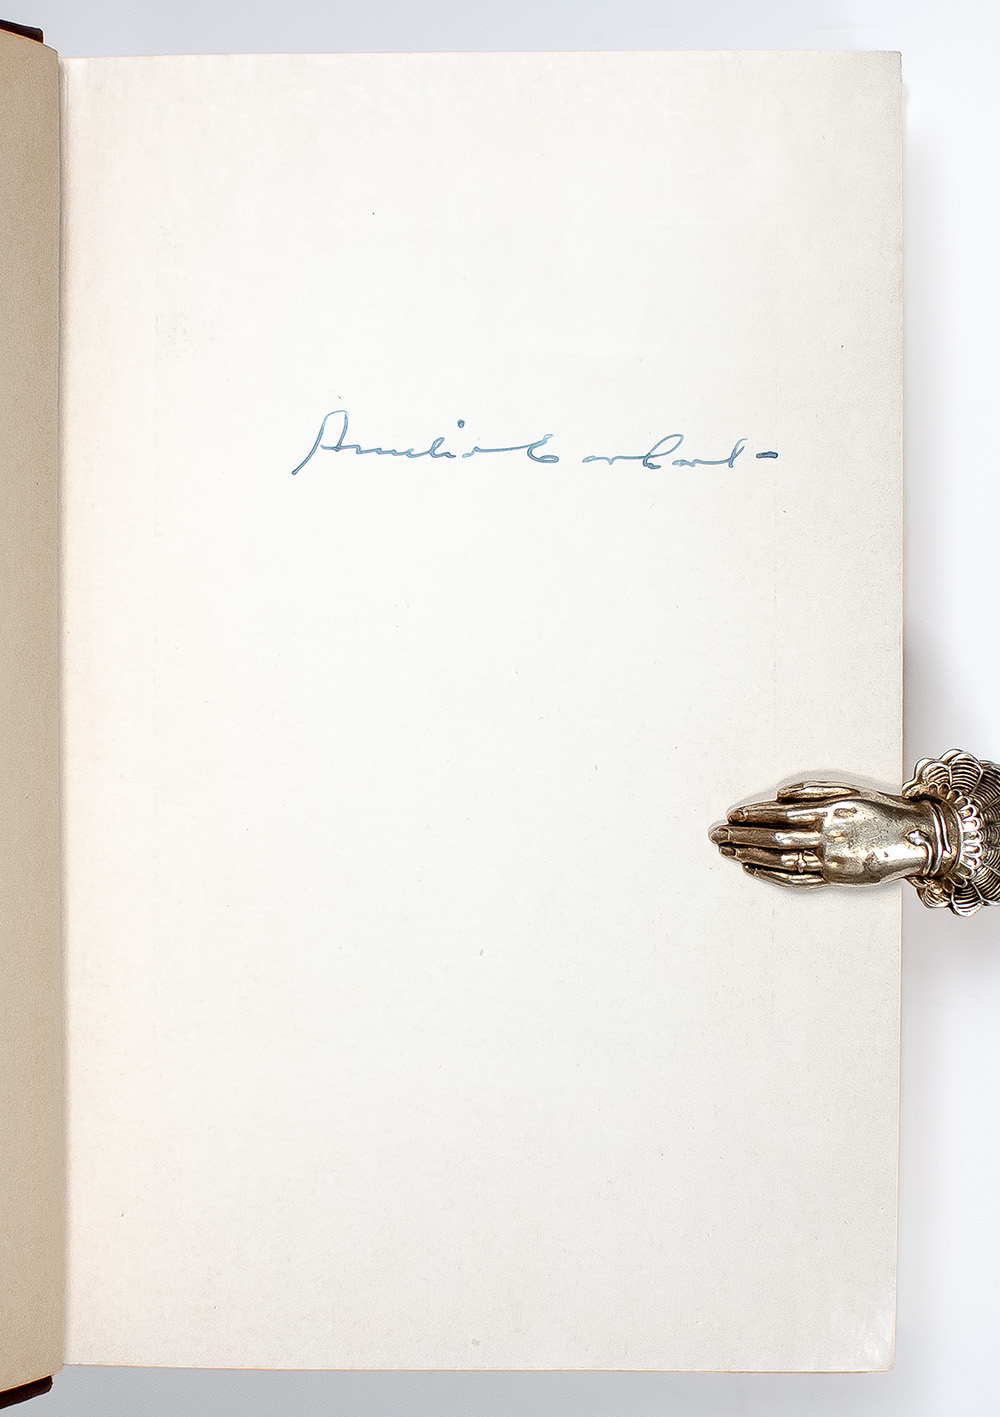 Amelia Earhart -